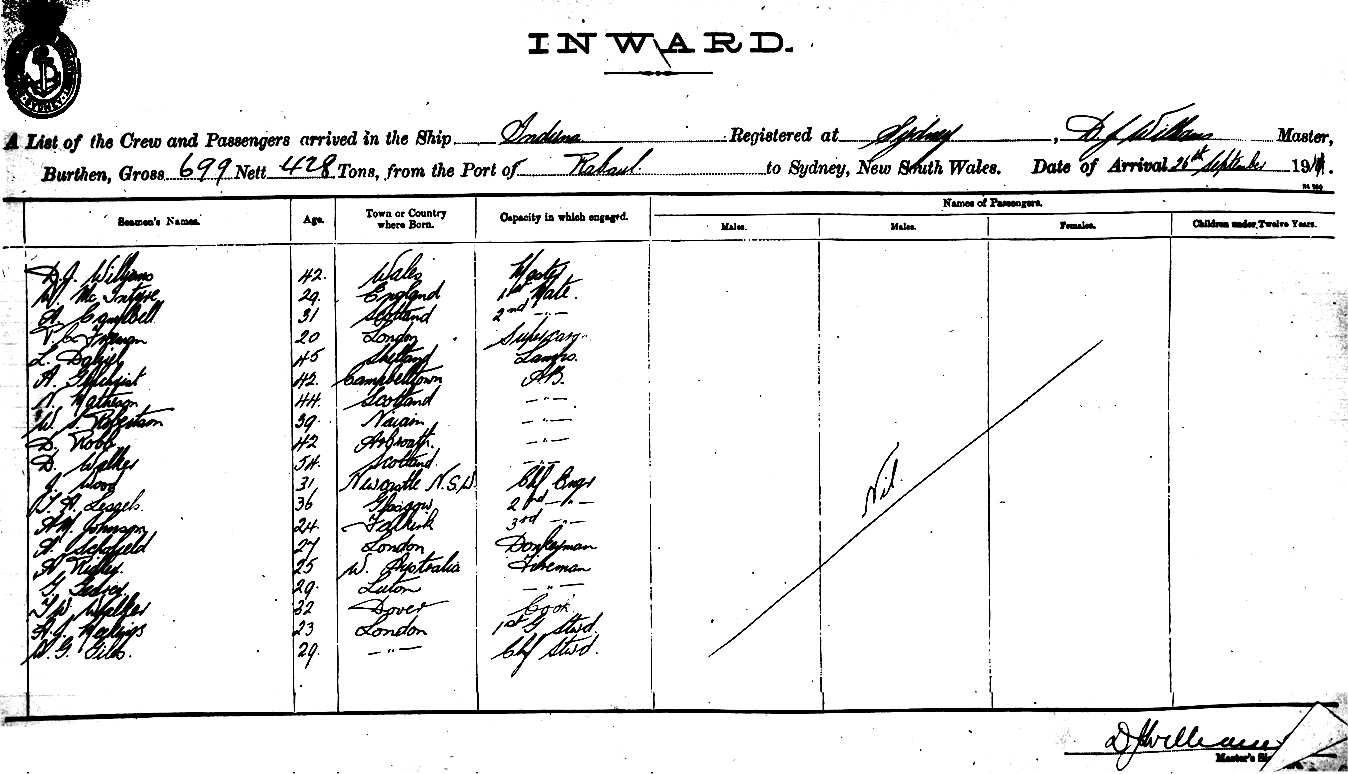 SYDNEY
INWARD.
A List of the Crew and Passengers arrived in the Ship Induna Registered at Sydney, D J Williams Master,
Burthen, Gross 699 Nett 428 Tons, from the Port of Rabaul to Sydney, New South Wales. Date of Arrival 26th September 191.
Seamen's Names. Age. Town or Country where Born. Capacity in which engaged. Names of Passengers.
Males. Males. Females. Children under Twelve Years.
D.J. Williams 42. Wales Master
W. McIntyre 29. England 1st Mate.
A. Campbell 31 Scotland 2nd -"-
20 London Supercarg.
L. Dalziel 45 Shetland Lamps.
A. Gilchrist 42. Campbelltown A.B.
N. Matheson 44. Scotland -"-
W. S. Robertson 39. Nairn -"-
D. Robb 42 Arbroath. -"-
D. Walker 54. Scotland. -"-
J. Wood 31 Newcastle N.S.W. Chf Engr
36 Glasgow 2nd -"-
A.M. Johnson 24 Falkirk 3rd -"-
A. Schofield 27 London Donkeyman
A. Ridley. 25 W. Australia Fireman
G. 29. Luton -"-
T.W. Walker 32 Dover Cook
A.J. 23 London 1st G Stwd.
W. G. Giles. 29. -"- Chf Stwd.
Nil.
D J Williams
Master's